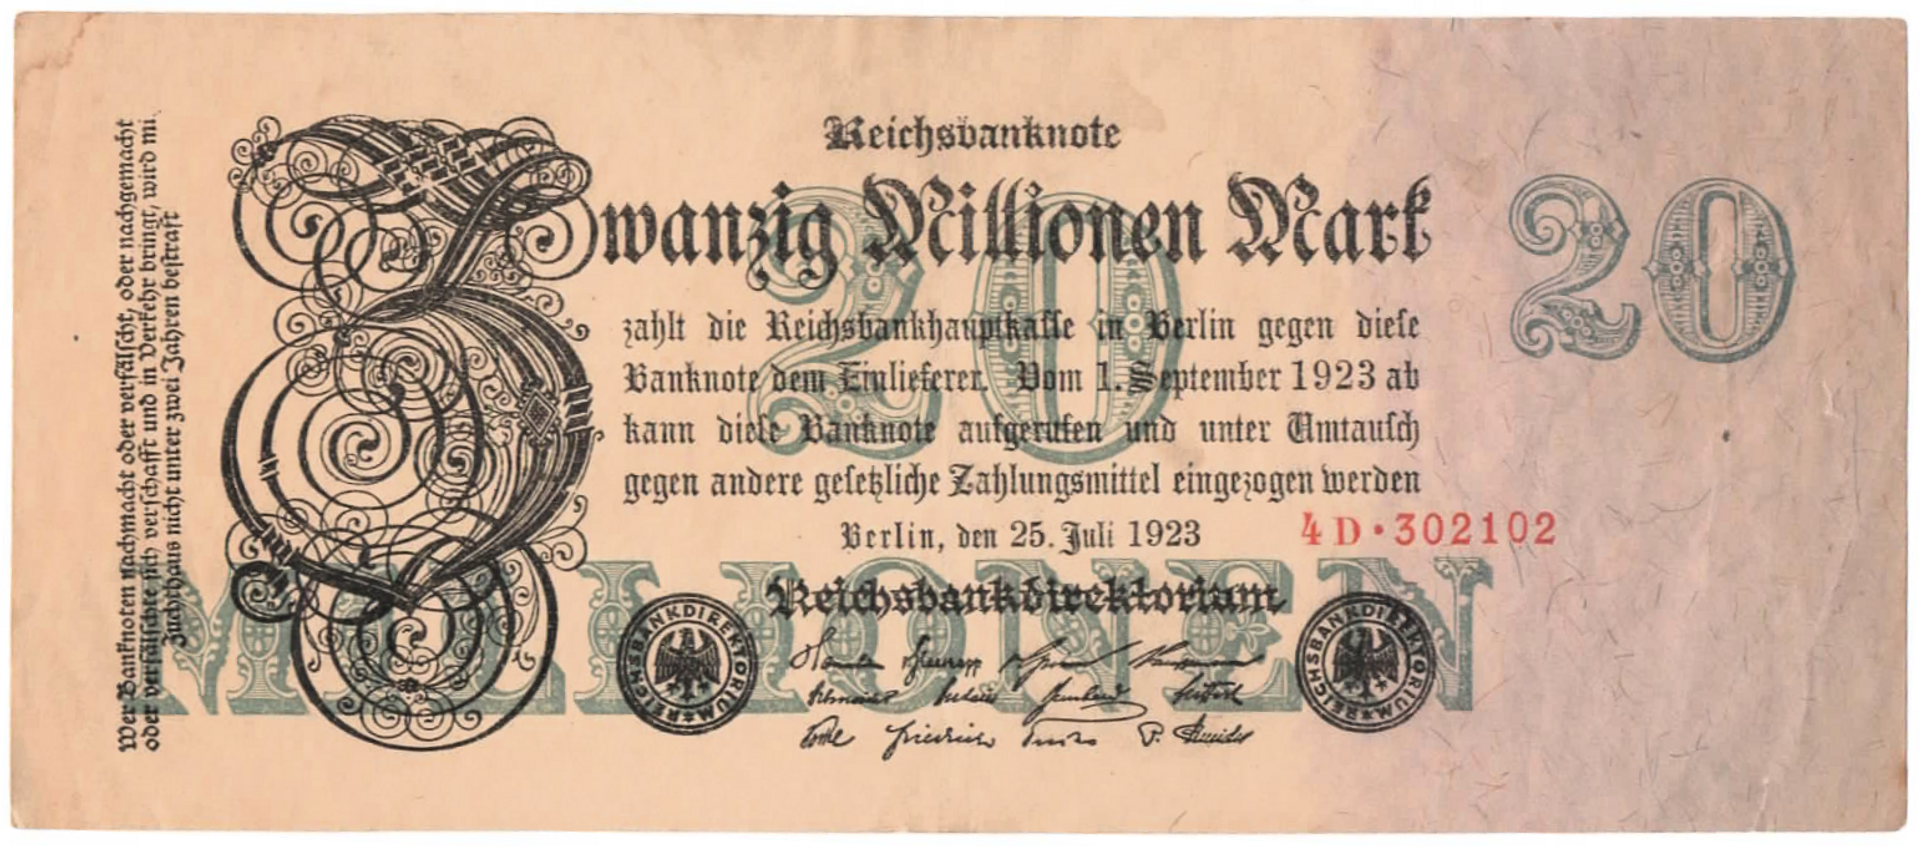 Reichsbanknote
Zwanzig Millionen Mark
20
20
zahlt die Reichsbankhauptkasse in Berlin gegen diese
Banknote dem Einlieferer. Vom 1. September 1923 ab
kann diese Banknote aufgerufen und unter Umtausch
gegen andere gesetzliche Zahlungsmittel eingezogen werden
Berlin, den 25. Juli 1923
4D·302102
MILLIONEN
Reichsbankdirektorium
REICHSBANKDIREKTORIUM
REICHSBANKDIREKTORIUM
Kauffmann
Schneider
Friedrich
P. Schneider
Wer Banknoten nachmacht oder verfälscht, oder nachgemacht
oder verfälschte sich verschafft und in Verkehr bringt, wird mi.
Zuchthaus nicht unter zwei Jahren bestraft